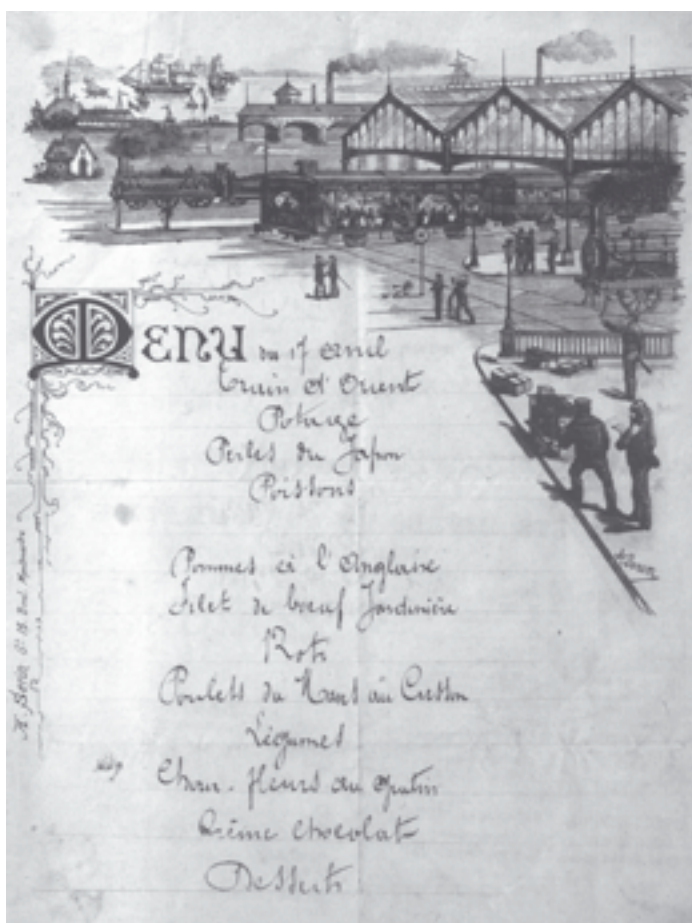 MENU du 17 avril
Train d'Orient
Potage
Perles du Japon
Poissons
Pommes à l'Anglaise
Filet de boeuf Jardinière
Roti
Poulets du Mans au Cresson
Légumes
Choux-fleurs au gratin
Crème chocolat
Desserts